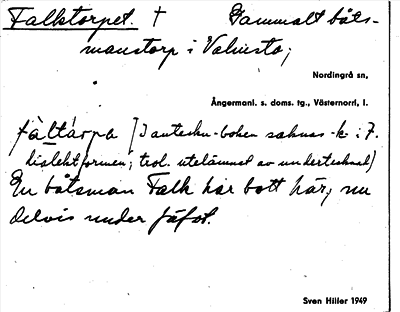 Falktorpet. † Gammalt båts-
manstorp i Valvesta;
Nordingrå sn,
Ångermanl. s. doms. tg., Västernorrl. l.
fàltårpa [I anteckn-boken saknas -k- i F.
dialektformen; trol. utelämnat av undertecknad]
En båtsman Falk har bott här; nu
delvis under fäfot.
Sven Hiller 1949